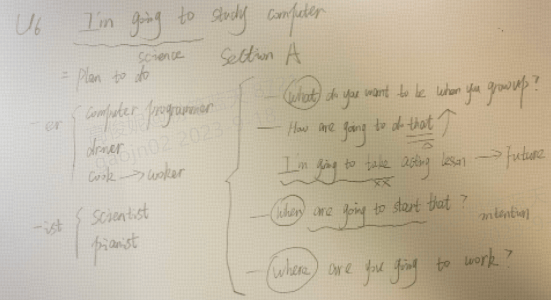 U6 I'm going to study computer
science Section A
= plan to do
-er computer programmer
driver
cook → woker
-ist scientist
pianist
— What do you want to be when you grow up?
— How are going to do that
I'm going to take acting lesson → Future
— When are going to start that?
intention
— Where are you going to work?